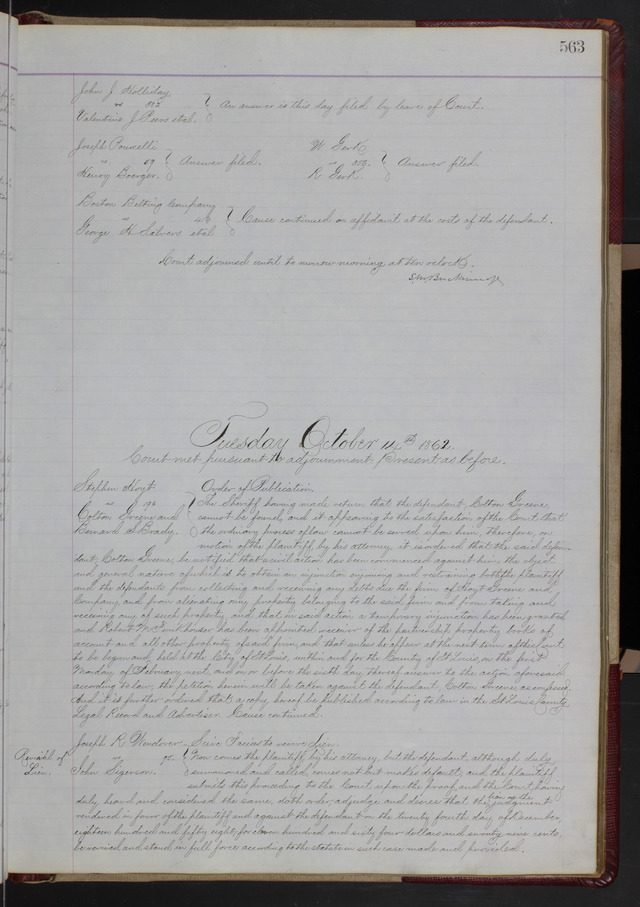 563
John J Holliday
vs 
Valentine J Peers et al. } An answer is this day filed by leave of Court.
Joseph
vs 59 } Answer filed.
Henry Boerger.
W Gerk
vs } Answer filed.
R Gerk.
Boston Belting Company
vs 
George H et al } Cause continued on affidavit at the costs of the defendant.
Court adjourned until to morrow morning at ten oclock.
Tuesday October 14th 1862.
Court met pursuant to adjournment, Present as before.
Stephen Hoyt Order of Publication.
vs The Sheriff having made return that the defendant, Colton Greene
Colton Greene and cannot be found, and it appearing to the satisfaction of the Court, that
S. Brady. the ordinary process of law cannot be served upon him, therefore, on
motion of the plaintiff, by his attorney, it is ordered that the said defen-
dant, Colton Greene, be notified that a civil action has been commenced against him, the object
and general nature of which is to obtain an injunction enjoining and restraining both the plaintiff
and the defendants from collecting and receiving any debts due the firm of Hoyt Greene and
Company, and from alienating any property belonging to the said firm and from taking and
receiving any of such property, and that in said action a temporary injunction has been granted
and Robert M Funkhouser has been appointed receiver of the partnership property books of
account and all other property of said firm, and that unless he appear at the next term of this Court
to be begun and held at the City of St Louis, within and for the County of St Louis, on the first
Monday of February next, and on or before the sixth day thereof answer to the action aforesaid
according to law, the petition herein will be taken against the defendant, Colton Greene, as confessed.
And it is further ordered that a copy hereof be published according to law in the St Louis County
Legal Record and Advertiser. Cause continued.
Revival of Lien.
Joseph R Wendover Scire Facias to revive Lien.
vs Now comes the plaintiff by his attorney, but the defendant, although duly
John Sigerson. summoned and called, comes not but makes default, and the plaintiff
submits this proceeding to the Court upon the proof, and the Court having
duly heard and considered the same, doth order, adjudge and decree that the lien on the judgment
rendered in favor of the plaintiff and against the defendant on the twenty fourth day of December
eighteen hundred and fifty eight, for eleven hundred and sixty four dollars and seventy nine cents,
be revived and stand in full force according to the statute in such case made and provided.